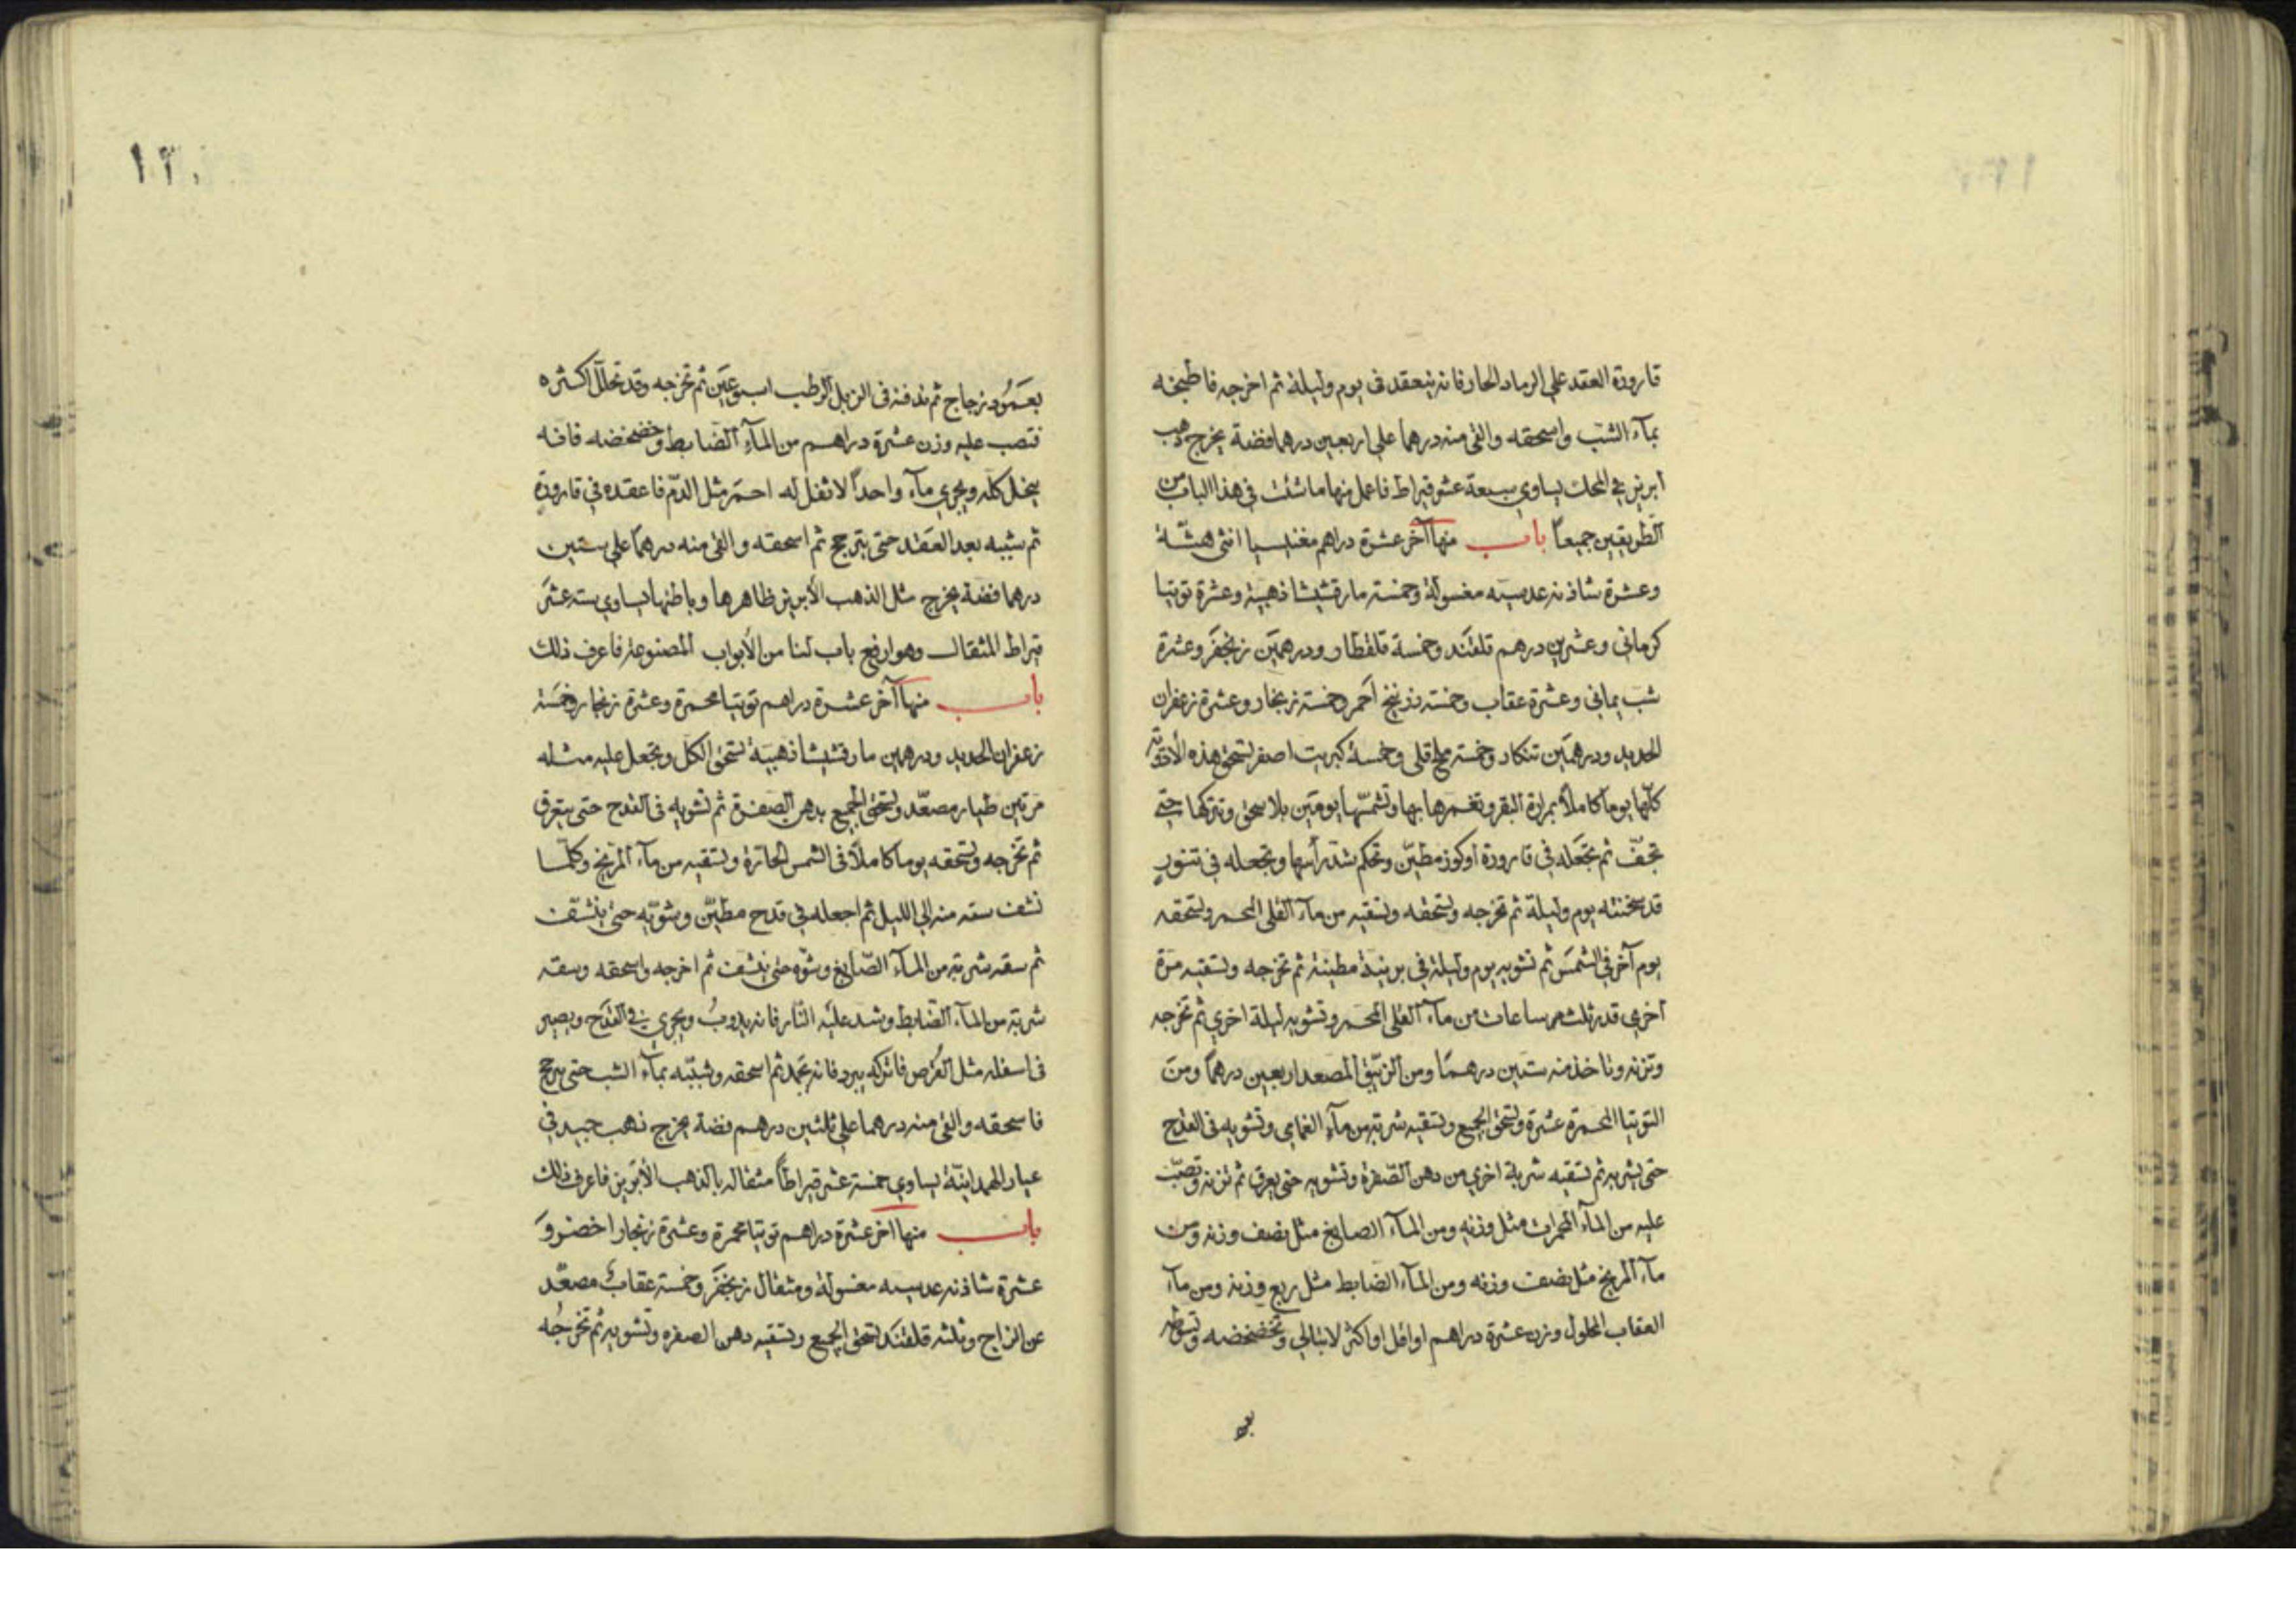 قارورة العقد علي الرماد الحار فانه ينعقد في يوم وليلة ثم اخرجه فاطبخه
بمآء الشب واسحقه والق منه درهما علي اربعين درهما فضة يخرج ذهب
ابريز في المحك يساوي سبعة عشر قيراط فاعمل منها ما شئت في هذا الباب من
الطريقين جميعاً باب منها آخر عشرة دراهم مغنيسيا انثي هشّة
وعشرة شاذنه عدسيه مغسولة وخمسة مارقشيشا ذهبية وعشرة توتيا
كرماني وعشرين درهم قلقند وخمسة قلقطار ودرهمين زنجفر وعشرة
شب يماني وعشرة عقاب وخمسة زرنيخ احمر وخمسة زنجار وعشرة زعفران
الحديد ودرهمين تنكار وخمسة ملح قلي وخمسة كبريت اصفر تسحق هذه الأدوية
كلّها يوما كاملاً بمرارة البقر وتغمرها بها وتشمّسها يومين بلا سحق وتتركها حتي
تجفّ ثم تجعله في قارورة او كوز مطيّن وتحكم شدّ رأسها وتجعله في تنورٍ
قد سخنته يوم وليلة ثم تخرجه وتسحقه وتسقيه من مآء القلي المحمر وتسحقه
يوم آخر في الشمس ثم تشويه يوم وليلة في برنية مطينة ثم تخرجه وتسقيه مرة
اخري قدر ثلث ساعات من مآء القلي المحمر وتشويه ليلة اخري ثم تخرجه
وتزنه وتاخذ منه ستين درهمًا ومن الزيبق المصعد اربعين درهمًا ومن
التوتيا المحمرة عشرة وتسحق الجميع وتسقيه شربة من مآء الغمامي وتشويه في القدح
حتي يشربه ثم تسقيه شربة اخري من دهن الصفرة وتشويه حتي يعرق ثم تزنه وتصبّ
عليه من المآء المحمرات مثل وزنه ومن المآء الصابغ مثل نصف وزنه ومن
مآء المريخ مثل نصف وزنه ومن المآء الضابط مثل ربع وزنه ومن مآء
العقاب المحلول وزن عشرة دراهم او اقل او اكثر لا تبالي وتخضخضه وتسوطه
بعمو
١٢٠
بعَمُود زجاج ثم تدفنه في الزبل الرطب اسبوعَين ثم تخرجه وقد تحلّل اكثره
فتصب عليه وزن عشرة دراهم من المآء الضابط وخضخضه فانه
ينحل كله ويجري مآء واحداً لا ثفل له احمر مثل الدّم فاعقده في قارورةٍ
ثم شببه بعد العقد حتي يترجج ثم اسحقه والق منه درهمًا علي ستين
درهما فضة يخرج مثل الذهب الأبريز ظاهرها وباطنها يساوي سته عشر
قيراط المثقال وهو ارفع باب لنا من الأبواب المصنوعة فاعرف ذلك
باب منها آخر عشرة دراهم توتيا محمرة وعشرة زنجار وخمسة
زعفران الحديد ودرهمين مارقشيشا ذهبية تسحق الكل وتجعل عليه مثله
مرتين طيار مصعّد وتسحق الجميع بدهن الصفرة ثم تشويه في القدح حتي يعرق
ثم تخرجه وتسحقه يوما كاملاً في الشمس الحارة وتسقيه من مآء المريخ وكلّما
نشف سقه منه الي الليل ثم اجعله في قدح مطيّن وشوّيه حتي ينشّف
ثم سقه شربة من المآء الصّابغ وشوّه حتي ينشف ثم اخرجه واسحقه وسقه
شربة من المآء الضابط وشد عليه النّار فانه يدوبُ ويجري في القدح ويصير
في اسفله مثل القُرص فاتركه يبرد فانه يجمد ثم اسحقه وشببّه بمآء الشب حتي يترجج
فاسحقه والق منه درهما علي ثلثين درهم فضة يخرج ذهب جيد في
عيار المحمدانيّة يساوي خمسة عشر قيراطاً مثقاله بالذهب الأبريز فاعرف ذلك
باب منها اخر عشرة دراهم توتيا محمرة وعشرة زنجار اخضر وَ
عشرة شاذنه عدسيه مغسولة ومثقال زنجفر وخمسة عقاب مصعّد
عن الزاج وثلثه قلقند تسحق الجميع وتسقيه دهن الصفره وتشويه ثم تخرجُه